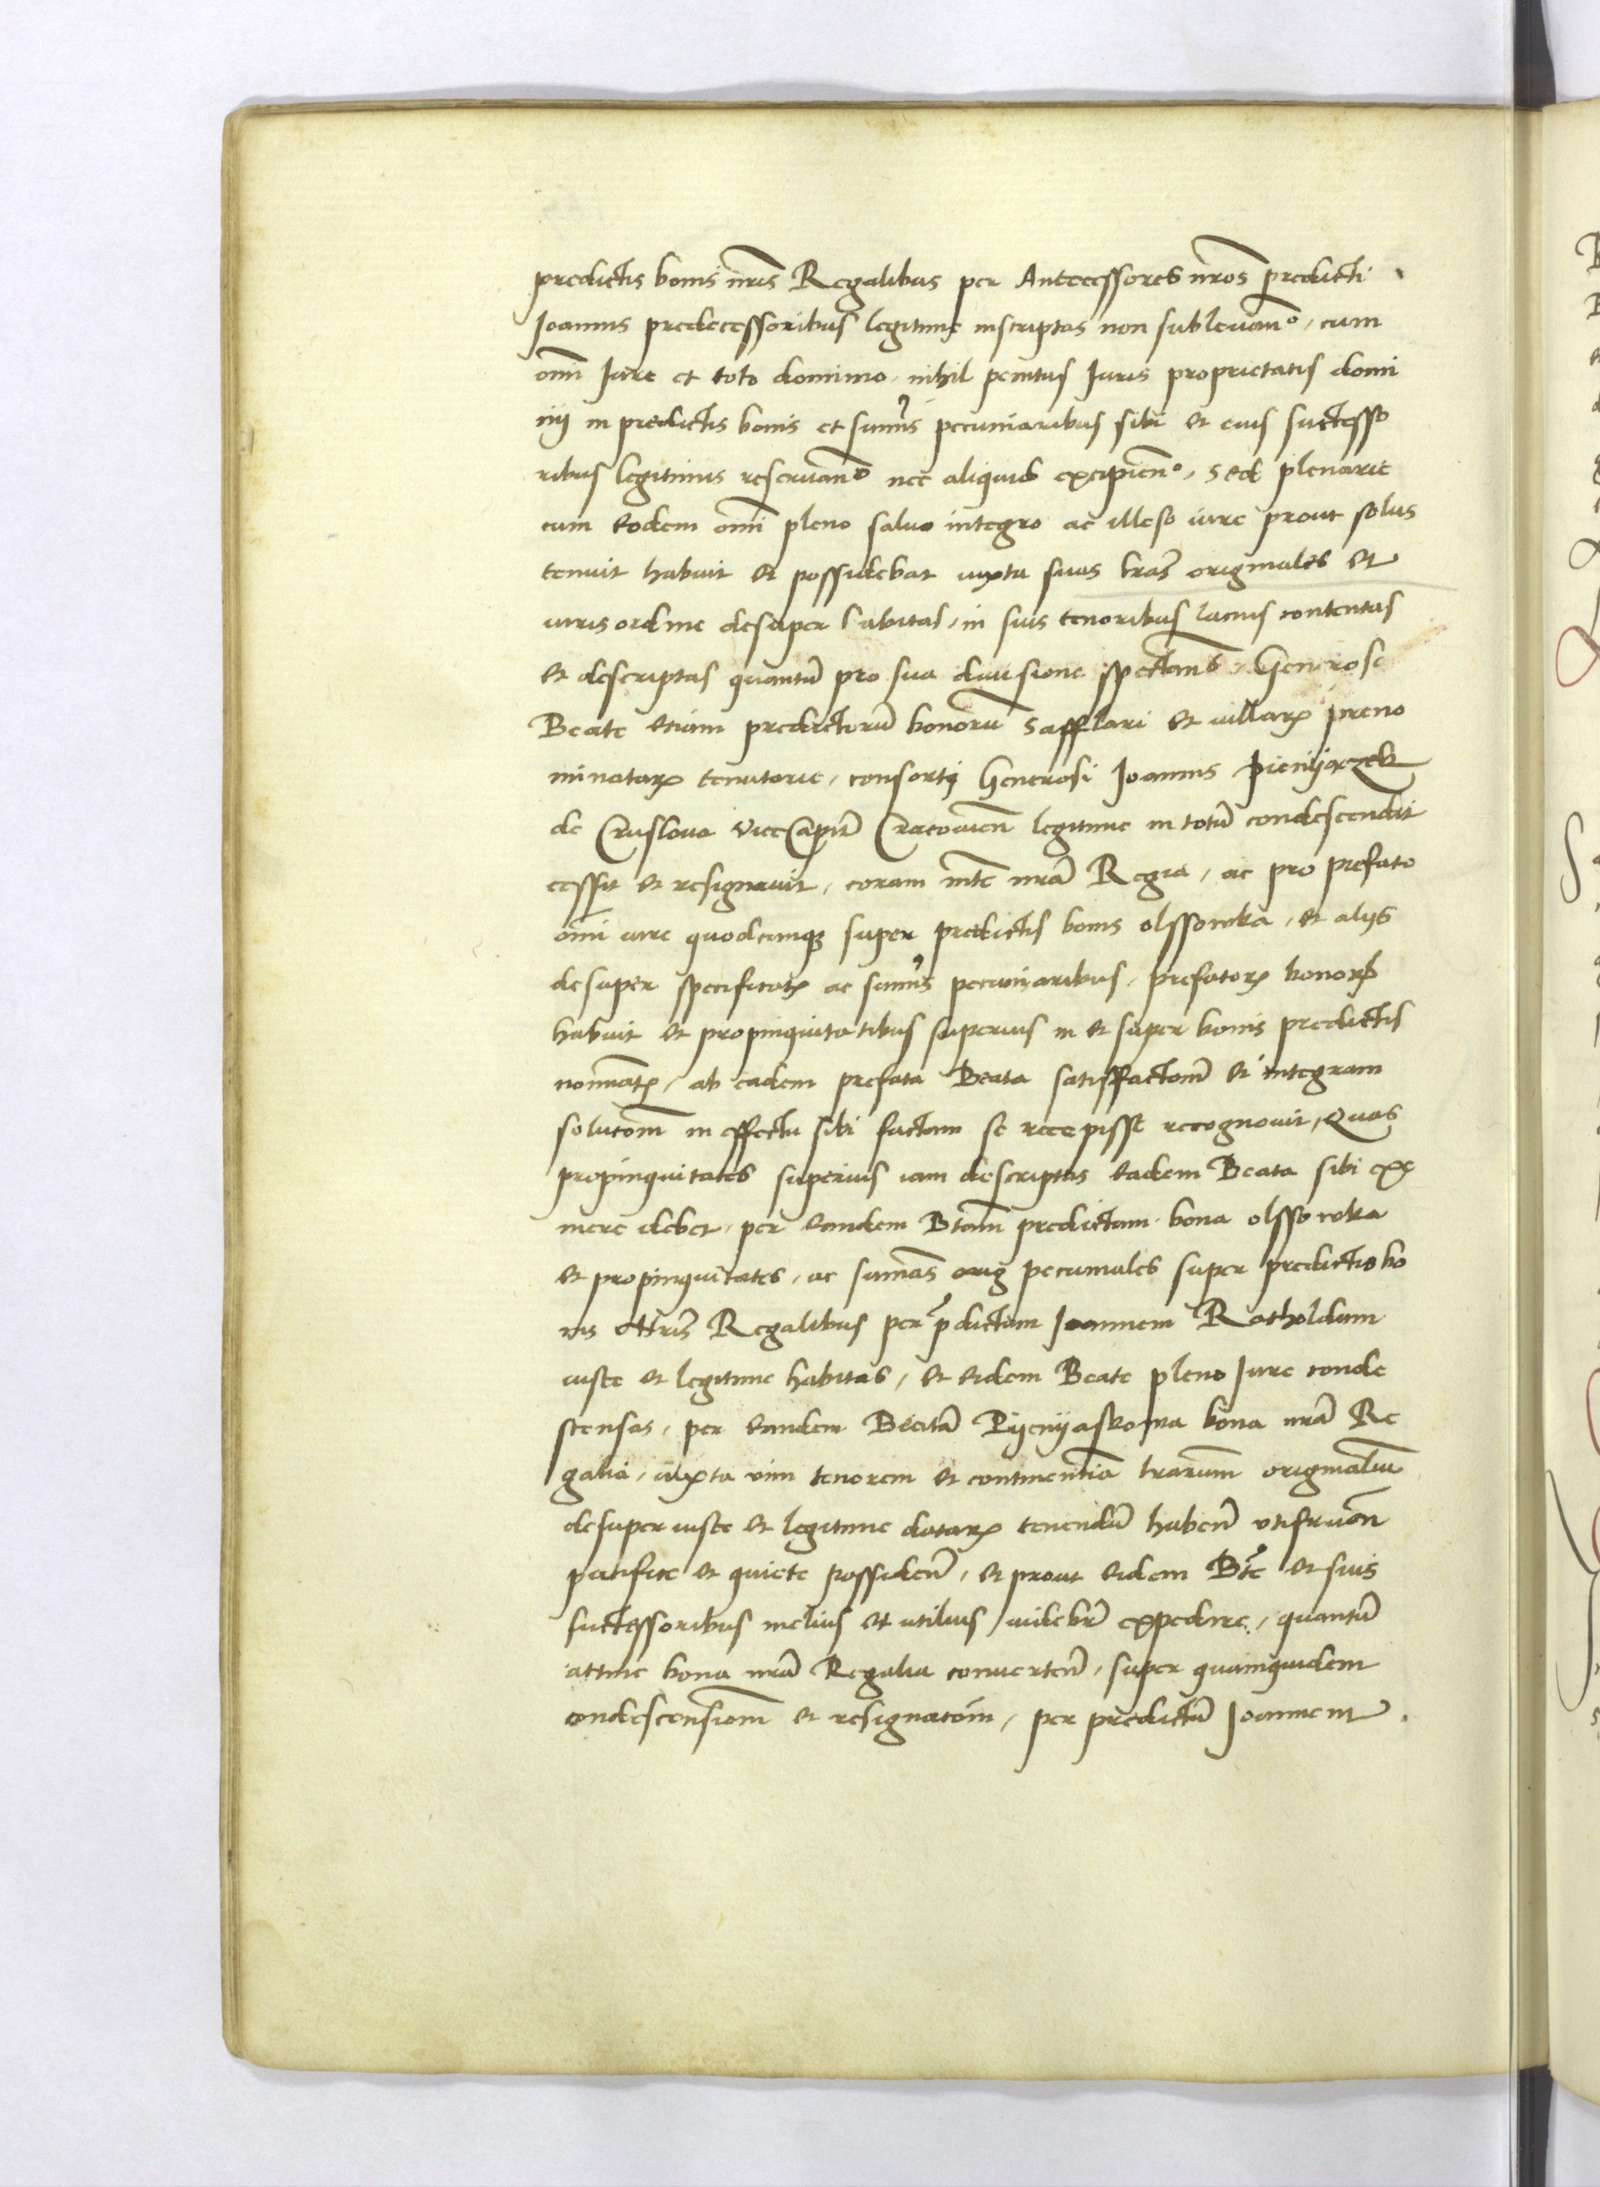 predictis bonis nr̃is Regalibus per Antecessores nr̃os predicti
Ioannis predecessoribus legitime inscriptas non sublevan°, cum
om̃i Iure et toto dominio, nihil penitus Iuris proprietatis domi
nij in predictis bonis et sum̃is pecuniaribus sibi et eius successo
ribus legitimis reservan° nec aliquid excipien°, Sed plenarie
cum eodem om̃i pleno salvo integro ac illeso iure prout solus
tenuit habuit et possidebat iuxta suas l̃ras originales et
iuris ordine desuper habitas, in suis tenoribus lacius contentas
et descriptas quantũ pro sua divisione spectant, Generose
Beate etiam predictorũ bonorũ Safflari et villarꝝ preno
minatarꝝ tenutarie, consorti Generosi Ioannis Pienijazek
de Cruslova viceCapit̃ Cracovien̄ legitime in totũ condescendit
cessit et resignavit, coram m̃te nr̃a Regia, ac pro prefato
om̃i iure quodcunqꝫ super predictis bonis olssowka, et alijs
desuper specificatꝭ ac sum̃is pecuniaribus, prefatorꝝ bonorꝝ
habuit et propinquitatibus superius in et super bonis predictis
nominatꝭ, ab eadem prefata Beata satisfactom̃ et integram
solutom̃ in effectu sibi factam se recepisse recognovit, Quas
propinquitates superius iam descriptas eadem Beata sibi exi
mere debet, per eandem Btam̃ predictam bona olssowka
et propinquitates, ac sum̃as orig pecuniales super predictis bo
nis nr̃is Regalibus per p̃dictum Ioannem Ratholdum
iuste et legitime habitas, et eidem Beate pleno Iure conde
scensas, per eandem Beatã Pijenijaskowa bona nr̃a Re
galia, iuxta vim tenorem et continentia l̃rarum originaliũ
desuper iuste et legitime datarꝝ tenendũ haben̄ utifruen̄
pacifice et quiete possiden̄, et prout eidem Bt̃e et suis
successoribus melius et utilius videbr̃ expedire, quantũ
attine bona nr̃a Regalia converten̄, super quamquidem
condescensiom̃ et resignatom̃, per predictũ Ioannem